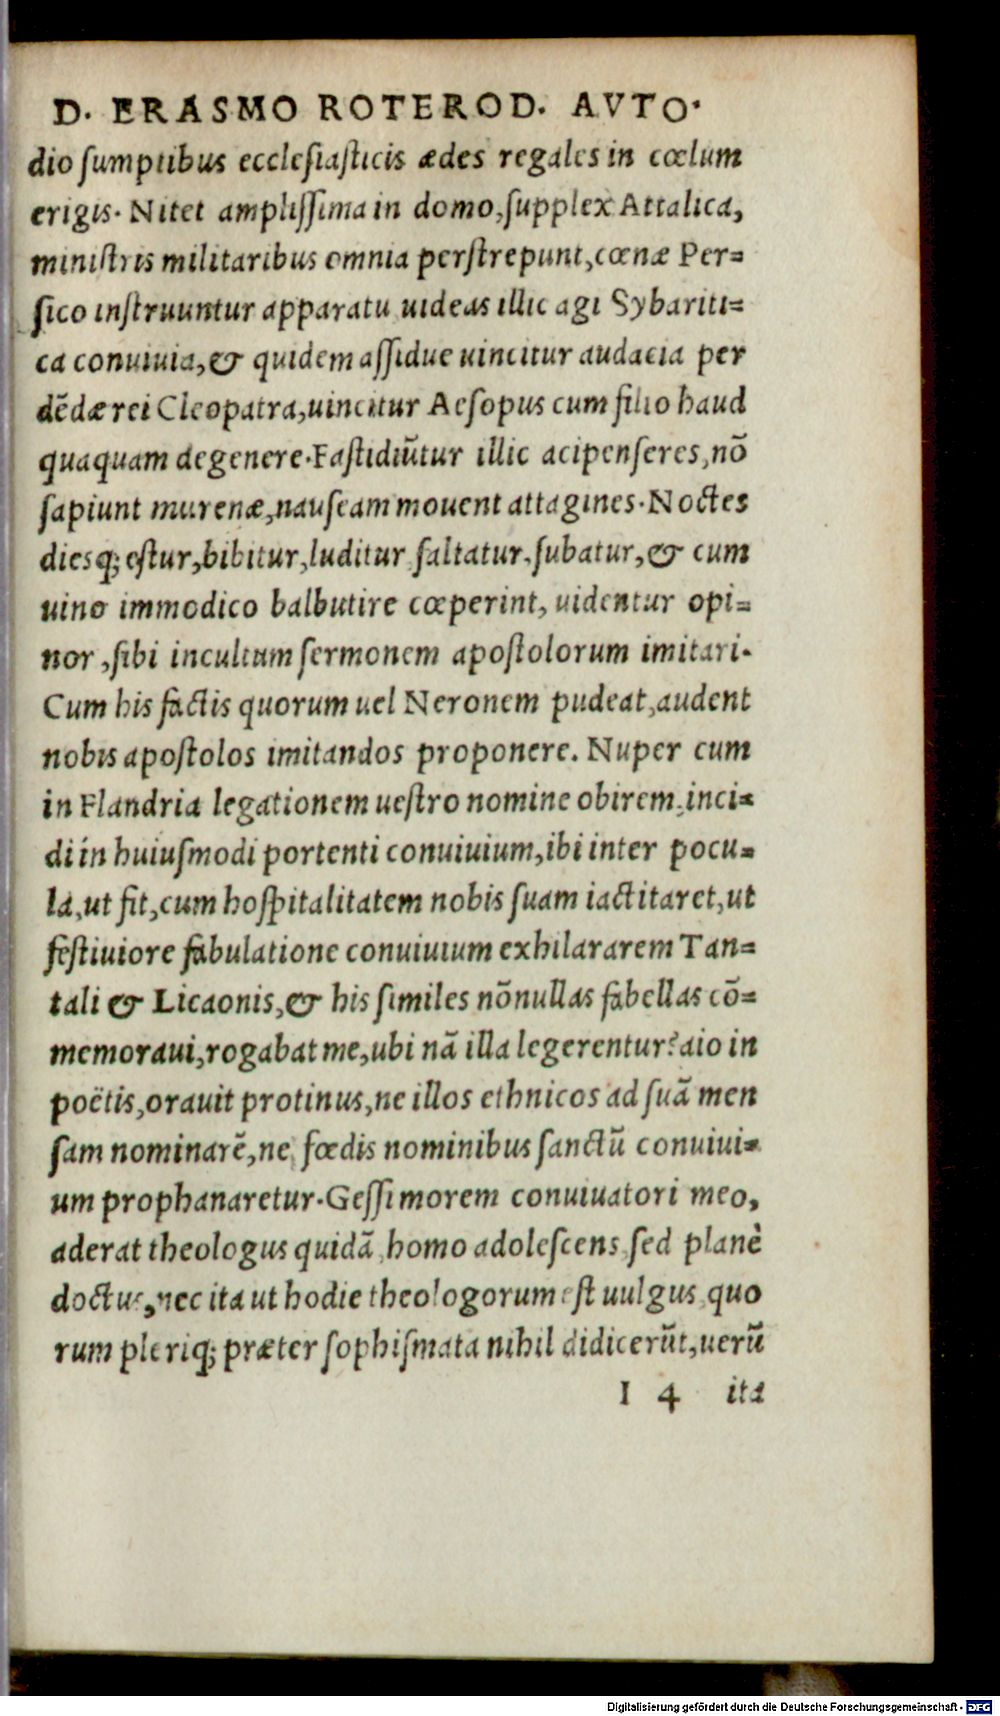 D. ERASMO ROTEROD. AVTO.
dio ſumptibus eccleſiaſticis ædes regales in cœlum
erigis. Nitet ampliſſima in domo, ſupplex Attalica,
miniſtris militaribus omnia perſtrepunt, cœnæ Per=
ſico inſtruuntur apparatu uideas illic agi Sybariti=
ca conuiuia, & quidem aſſidue uincitur audacia per
dēdæ rei Cleopatra, uincitur Aeſopus cum filio haud
quaquam degenere. Faſtidiūtur illic acipenſeres, nō
ſapiunt murenæ, nauſeam mouent attagines. Noctes
diesq; eſtur, bibitur, luditur, ſaltatur, ſubatur, & cum
uino immodico balbutire cœperint, uidentur opi=
nor, ſibi incultum ſermonem apoſtolorum imitari.
Cum his factis quorum uel Neronem pudeat, audent
nobis apoſtolos imitandos proponere. Nuper cum
in Flandria legationem ueſtro nomine obirem, inci=
di in huiuſmodi portenti conuiuium, ibi inter pocu=
la, ut fit, cum hoſpitalitatem nobis ſuam iactitaret, ut
feſtiuiore fabulatione conuiuium exhilararem Tan=
tali & Licaonis, & his ſimiles nōnullas fabellas cō=
memoraui, rogabat me, ubi nā illa legerentur? aio in
poëtis, orauit protinus, ne illos ethnicos ad ſuā men
ſam nominarē, ne fœdis nominibus ſanctū conuiui=
um prophanaretur. Geſſi morem conuiuatori meo,
aderat theologus quidā, homo adoleſcens, ſed planè
doctus, nec ita ut hodie theologorum eſt uulgus, quo
rum pleriq; præter ſophiſmata nihil didicerūt, uerū
I 4 ita
Digitalisierung gefördert durch die Deutsche Forschungsgemeinschaft - DFG